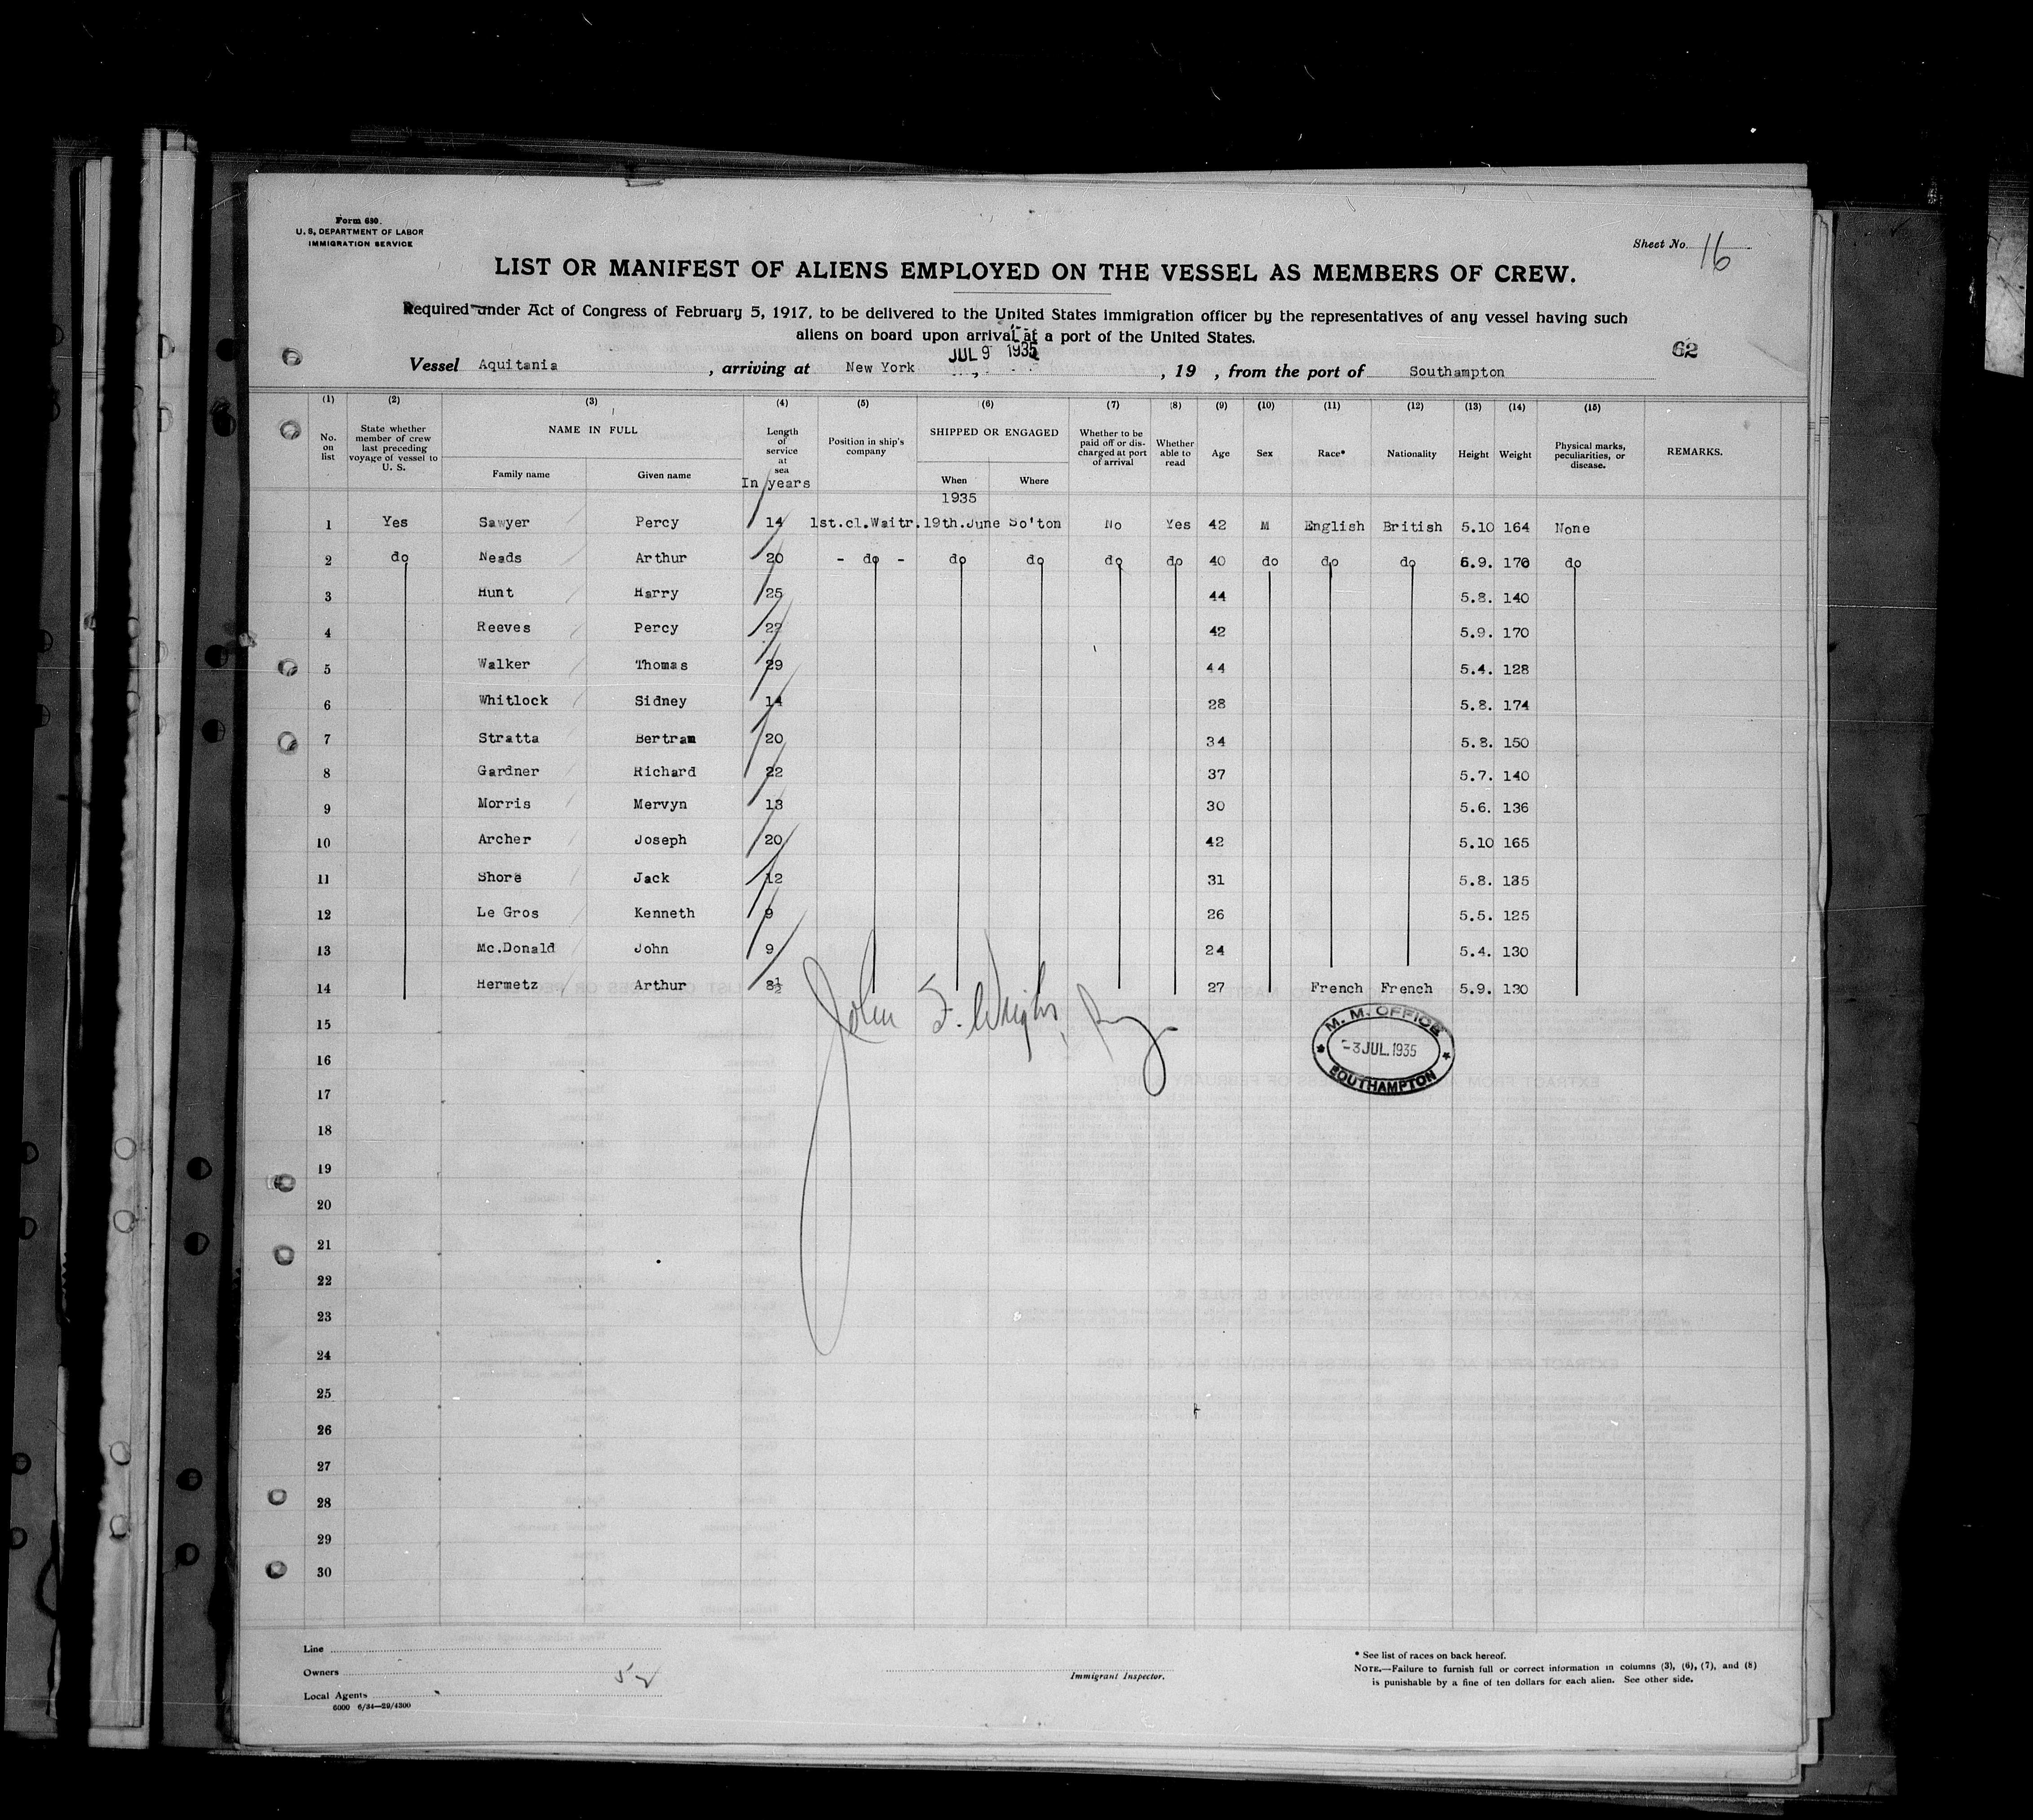 Form 630.
U. S. DEPARTMENT OF LABOR
IMMIGRATION SERVICE
Sheet No. 16
LIST OR MANIFEST OF ALIENS EMPLOYED ON THE VESSEL AS MEMBERS OF CREW.
Required under Act of Congress of February 5, 1917, to be delivered to the United States immigration officer by the representatives of any vessel having such
aliens on board upon arrival at a port of the United States.
62
JUL 9 1935
Vessel Aquitania , arriving at New York , 19 , from the port of Southampton
(1) (2) (3) (4) (5) (6) (7) (8) (9) (10) (11) (12) (13) (14) (15)
No. on list State whether member of crew last preceding voyage of vessel to U. S. NAME IN FULL Family name Given name Length of service at sea In years Position in ship's company SHIPPED OR ENGAGED When Where Whether to be paid off or discharged at port of arrival Whether able to read Age Sex Race* Nationality Height Weight Physical marks, peculiarities, or disease. REMARKS.
1935
1 Yes Sawyer Percy 14 1st.cl.Waitr. 19th.June So'ton No Yes 42 M English British 5.10 164 None
2 do Neads Arthur 20 - do - do do do do 40 do do do 5.9. 170 do
3 Hunt Harry 25 44 5.8. 140
4 Reeves Percy 22 42 5.9. 170
5 Walker Thomas 29 44 5.4. 128
6 Whitlock Sidney 14 28 5.8. 174
7 Stratta Bertram 20 34 5.8. 150
8 Gardner Richard 22 37 5.7. 140
9 Morris Mervyn 13 30 5.6. 136
10 Archer Joseph 20 42 5.10 165
11 Shore Jack 12 31 5.8. 135
12 Le Gros Kenneth 9 26 5.5. 125
13 Mc.Donald John 9 24 5.4. 130
14 Hermetz Arthur 27 French French 5.9. 130
15
John F. Wright
M. M. OFFICE
-3 JUL. 1935
SOUTHAMPTON
16
17
18
19
20
21
22
23
24
25
26
27
28
29
30
Line
Owners
Local Agents
6000 6/34—29/4300
Immigrant Inspector.
* See list of races on back hereof.
NOTE.—Failure to furnish full or correct information in columns (3), (6), (7), and (8)
is punishable by a fine of ten dollars for each alien. See other side.